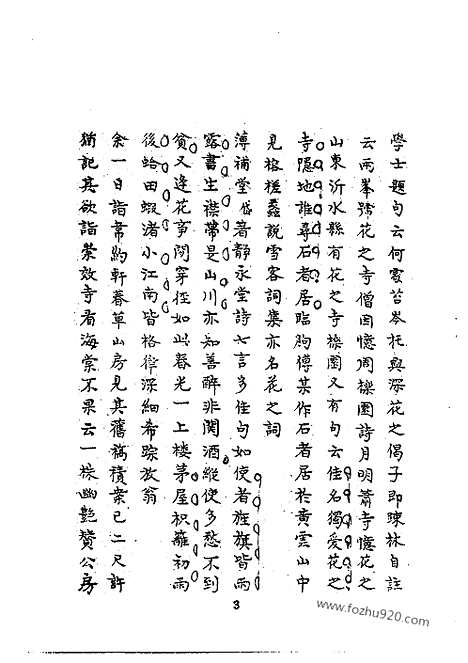 學士題句云何處苔岑托興深花之偈子即疎林自註
云兩峯號花之寺僧因憶周櫟園詩月明蕭寺憶花之
山東沂水縣有花之寺櫟園又有句云佳名獨愛花之
寺隱地誰尋石者居臨朐傅某作石者居於黄雲山中
見格槎蠡説雪客詞集亦名花之詞
薄補堂岱著靜永堂詩七言多佳句如使者旌旗皆雨
露書生襟帶是山川亦知善醉非関酒縱使多愁不到
貧又逢花事閒穿徑如此春光一上樓茅屋枳籬初雨
後蛤田蝦渚小江南皆格律深細希踪放翁
余一日詣韋約軒暮草山房見其舊稿積案已二尺許
猶記其欲詣崇效寺看海棠不果云一株幽艶贊公房
3
www.fozhu920.com